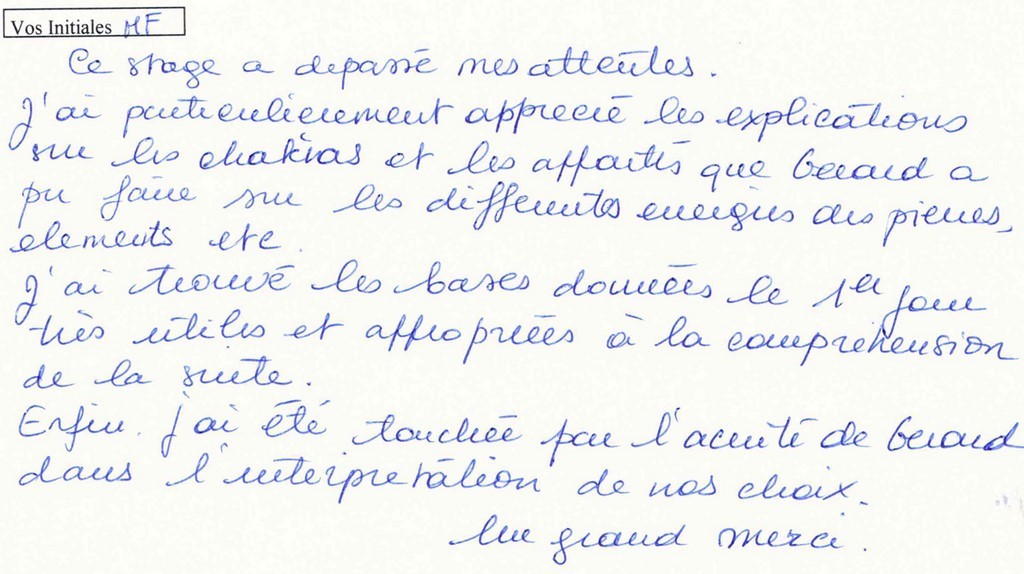 Vos Initiales MF
Ce stage a depassé mes attentes.
J'ai particulièrement apprecié les explications
sur les chakras et les apports que Gerard a
pu faire sur les differentes energies des pierres,
elements etc.
J'ai trouvé les bases données le 1er jour
très utiles et appropriées à la compréhension
de la suite.
Enfin. j'ai été touchée par l'acuité de Gerard
dans l'interprétation de nos choix.
Un grand merci.